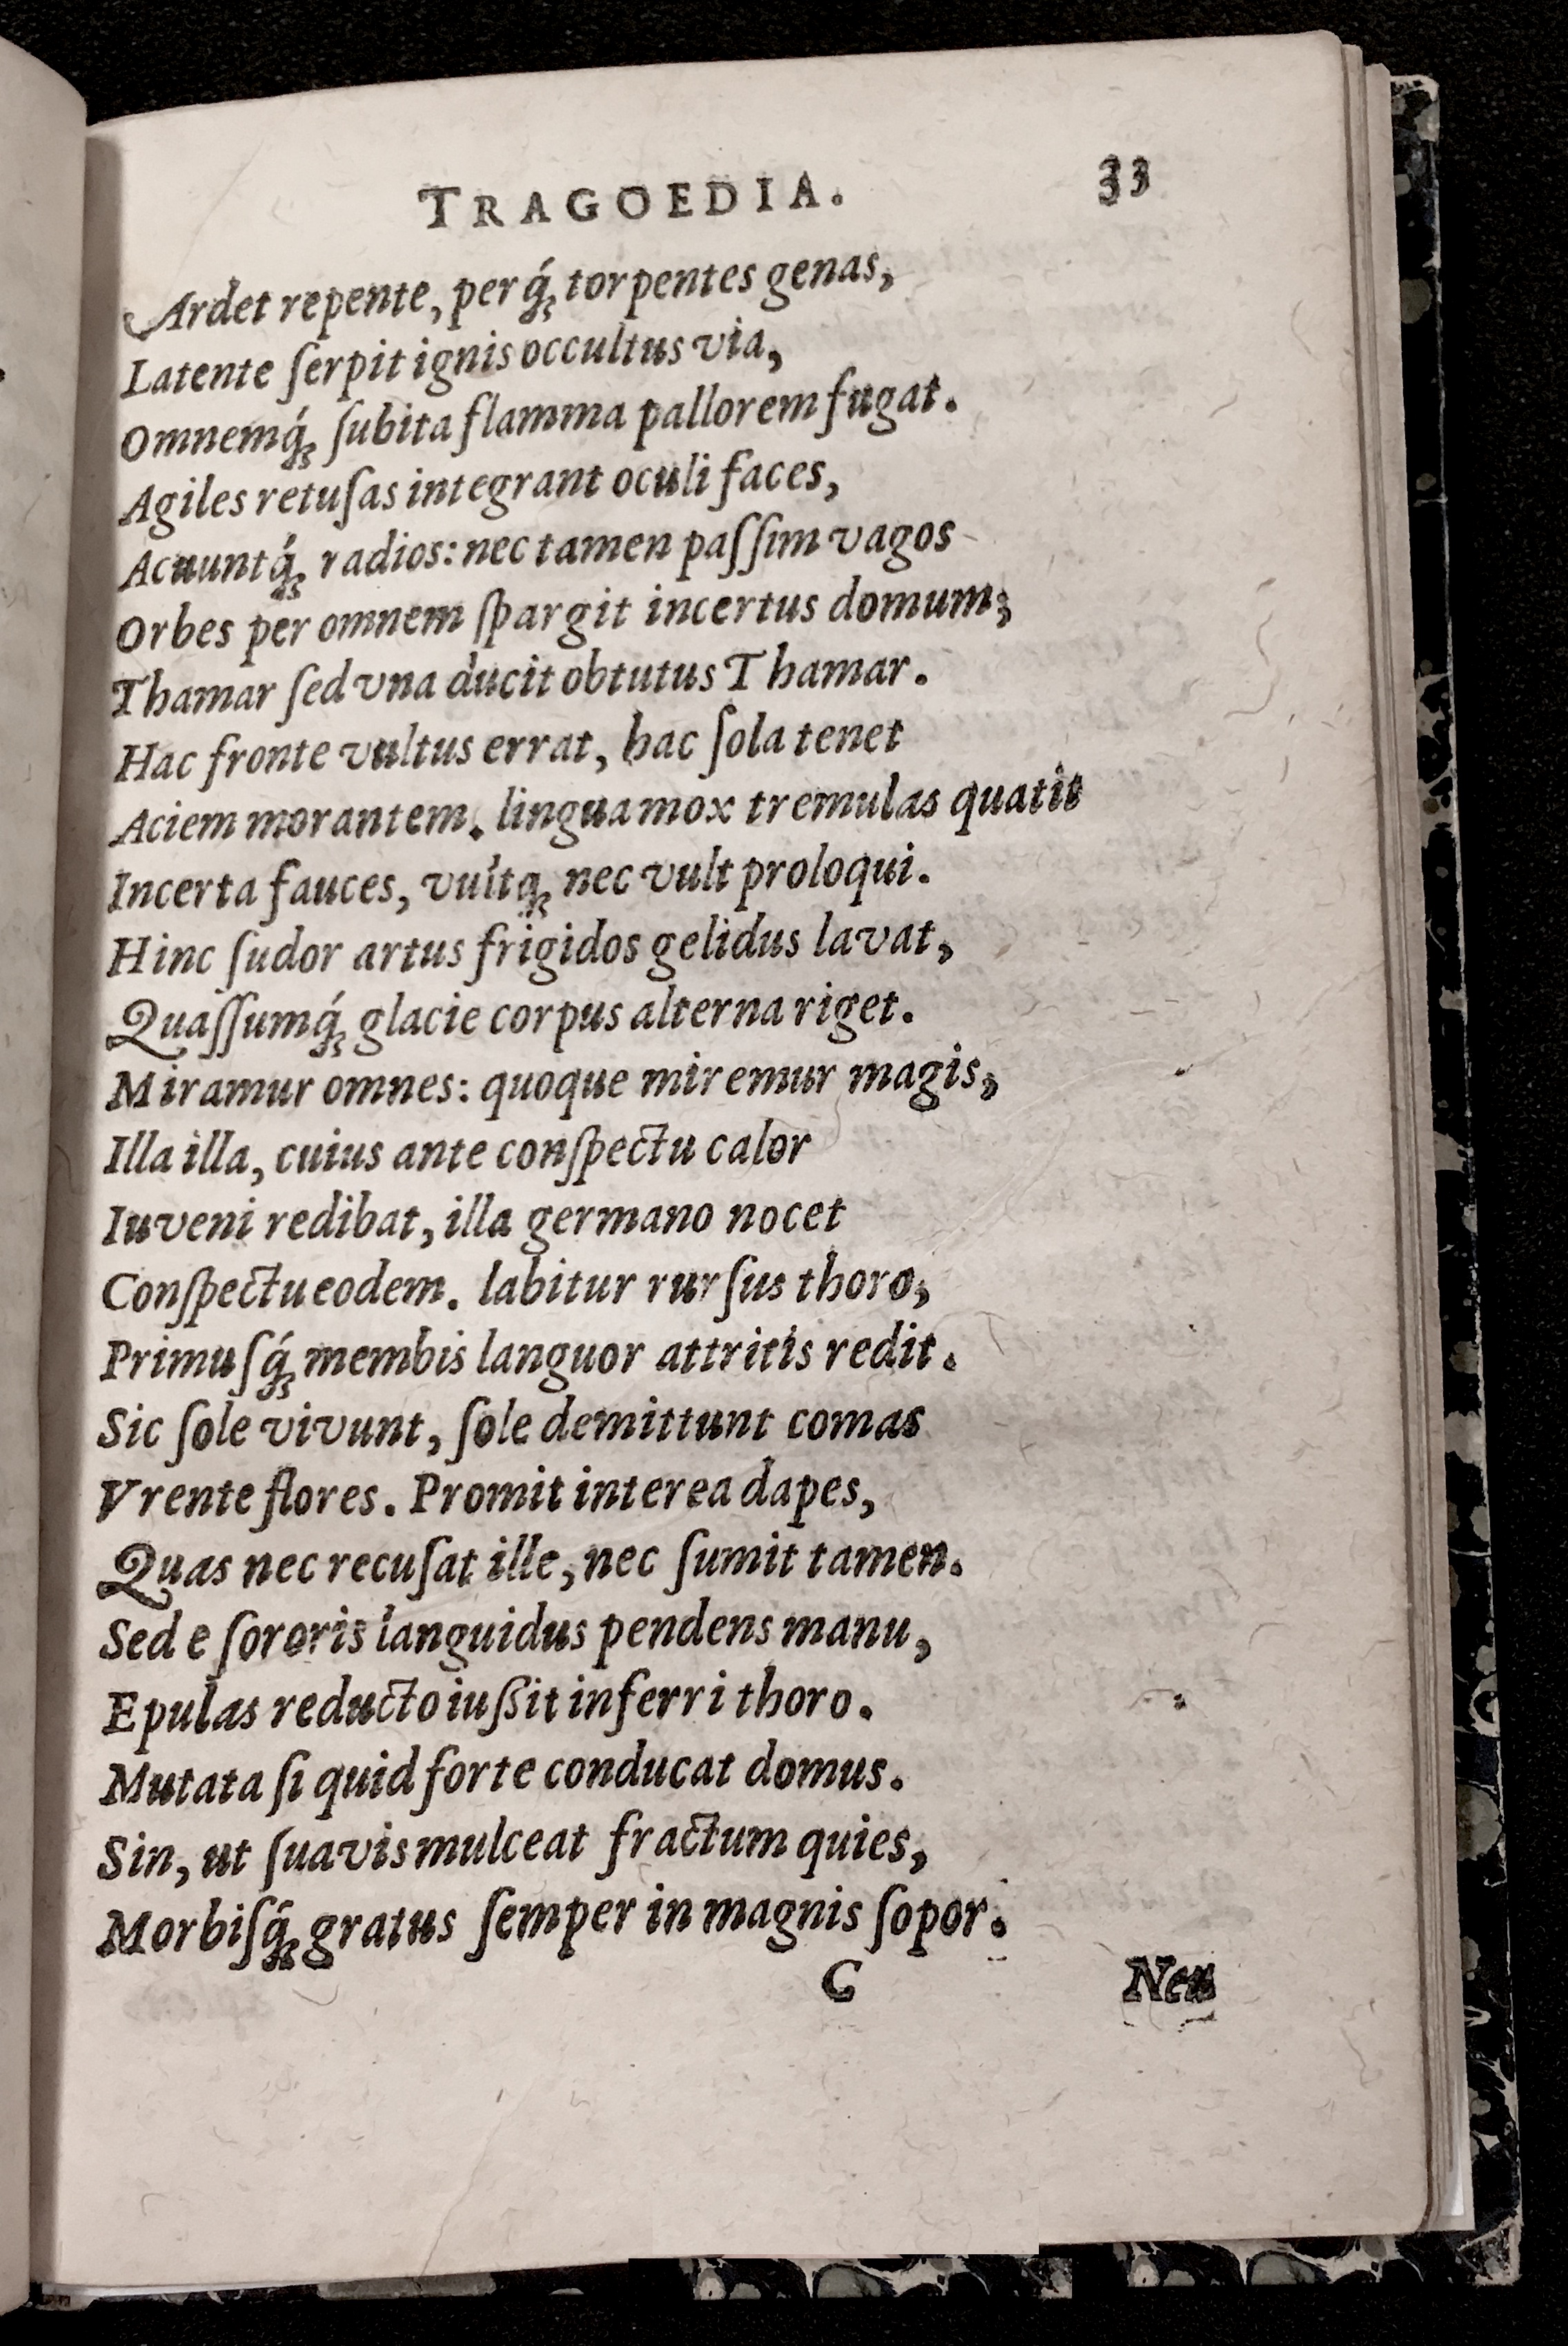 TRAGOEDIA. 33
Ardet repente, perq́ꝫ torpentes genas,
Latente ſerpit ignis occultus via,
Omnemq́ꝫ ſubita flamma pallorem fugat.
Agiles retuſas integrant oculi faces,
Acuuntq́ꝫ radios: nec tamen paſſim vagos
Orbes per omnem ſpargit incertus domum;
Thamar ſed vna ducit obtutus Thamar.
Hac fronte vultus errat, hac ſola tenet
Aciem morantem. lingua mox tremulas quatit
Incerta fauces, vultqꝫ nec vult proloqui.
Hinc ſudor artus frigidos gelidus lavat,
Quaſſumq́ꝫ glacie corpus alterna riget.
Miramur omnes: quoque miremur magis,
Illa illa, cuius ante conſpectu calor
Iuveni redibat, illa germano nocet
Conſpectu eodem. labitur rurſus thoro,
Primuſq́ꝫ membis languor attritis redit.
Sic ſole vivunt, ſole demittunt comas
Vrente flores. Promit interea dapes,
Quas nec recuſat ille, nec ſumit tamen.
Sed e ſororis languidus pendens manu,
Epulas reducto iuſsit inferri thoro.
Mutata ſi quid forte conducat domus.
Sin, ut ſuavis mulceat fractum quies,
Morbiſq́ꝫ gratus ſemper in magnis ſopor.
C Neu